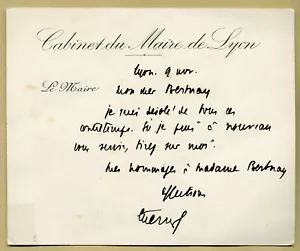 Cabinet du Maire de Lyon
Lyon. 9 nov.
Le Maire
Mon cher Bertnay
je suis désolé de tous ces
contretemps. Si je peux à nouveau
vous servir, tirez sur moi.
Mes hommages à Madame Bertnay